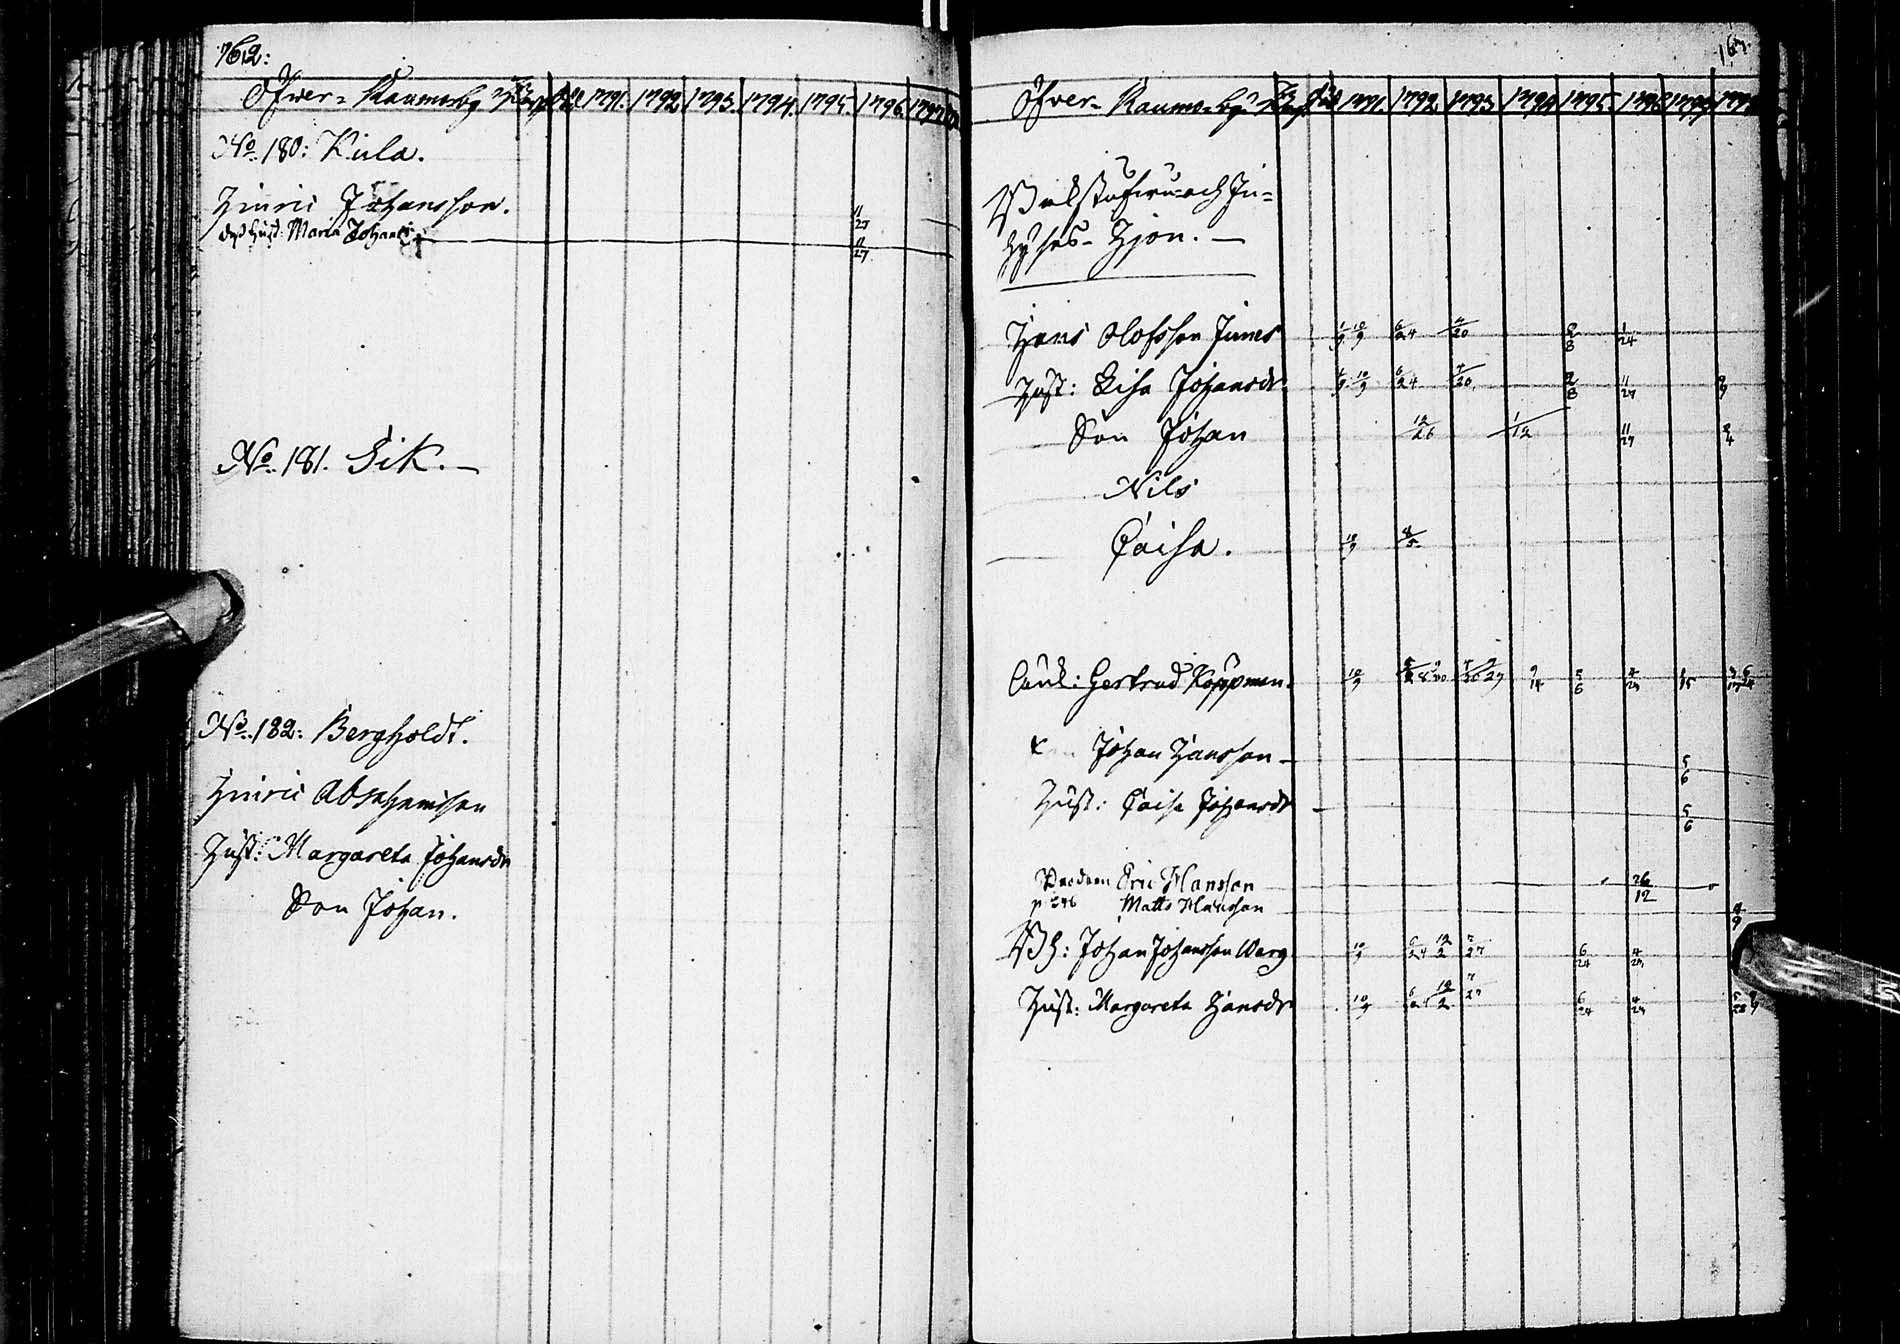 762:
Öfver- Raumo by 1791. 1792 1793. 1794. 1795. 1796. 1797
No. 180: Kula.
Hinric Johansson. 11/27
Hust: Maria Johansdr 11/27
No. 181. Sik. —
No. 182: Bergholdt.
Hinric Abrahamsson
Hust: Margareta Johansdr
Son Johan.
Öfver- Raumo-by 1791. 1792 1793 1794 1795 1796 1797
Backstufvu- och In-
hyses- Hjon. —
Hans Olofsson 10/9 6/24 4/20 2/8
Hust: Lisa Johansdr 10/9 6/24 4/20 2/8 11/27
Son Johan 12/26 1/12 11/27 2/4
Nils
Caisa. 10/9
Enk: Gertrud Koppman. 10/9 9/14 5/6 4/24 1/15
Johan Hansson — 5/6
Hust: Caisa Johansdr — 5/6
Eric Hansson 26/12
Matts Hansson 4/9
Bh: Johan Johansson Warg 10/9 6/24 12/2 7/27 6/24 4/24
Hust: Margareta Hansdr 10/9 12/2 7/27 6/24 4/24